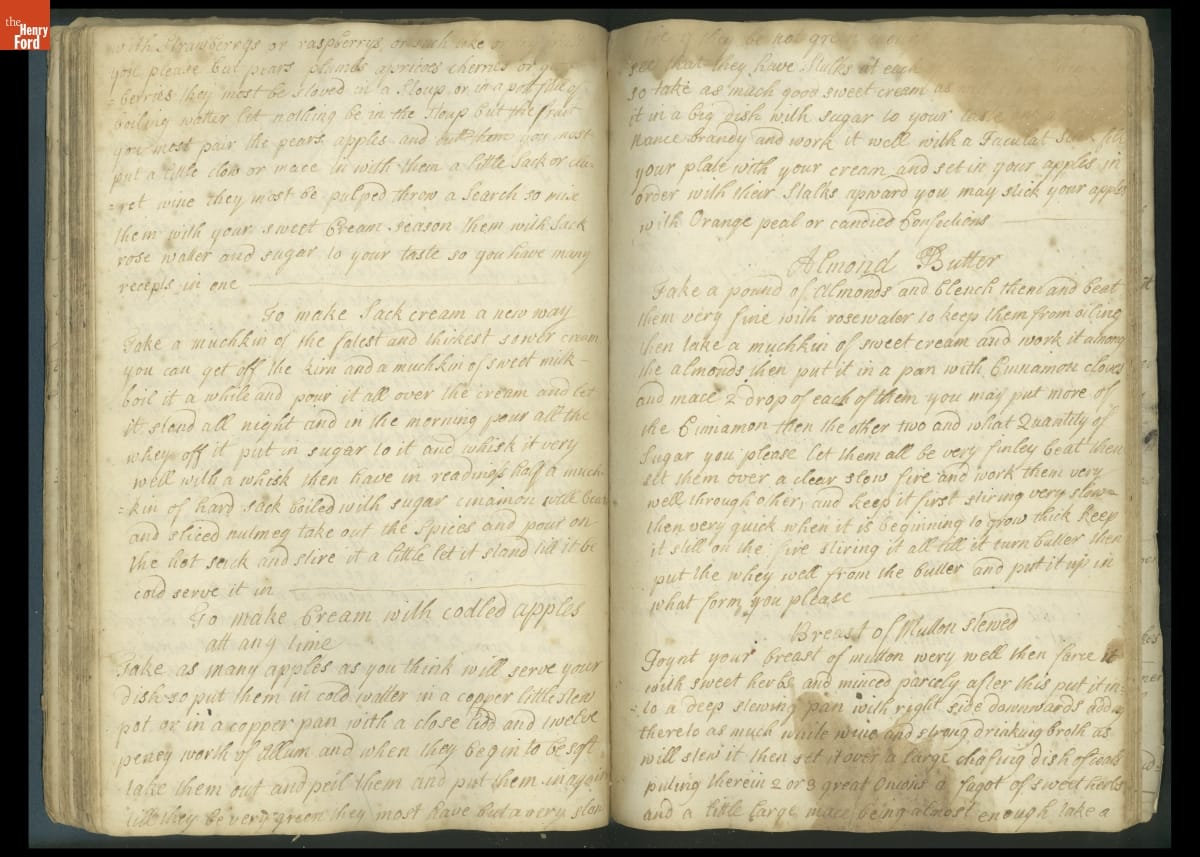 the
Henry
Ford
with Strawberrys or raspberrys or such like
you please but pears plumbs apricocs cherries or
=berries they most be stoved in a Stoup or in a pott full of
boiling watter let nothing be in the Stoup but the fruit
you most pair the pears apples and you most
put a little clow or mace in with them a little Sack or cla=
=ret wine they most be pulped throw a Search so mix
them with your sweet Cream season them with Sack
rose watter and sugar to your taste so you have many
recepts in one
To make Sack cream a new way
Take a muchkin of the fatest and thickest sower cream
you can get off the kirn and a muchkin of sweet milk
boil it a while and pour it all over the cream and let
it stand all night and in the morning pour all the
whey off it put in sugar to it and whisk it very
well with a whisk then have in readings half a much=
=kin of hard sack boiled with sugar cinamon well
and sliced nutmeg take out the Spices and pour on
the hot sack and stire it a little let it stand till it be
cold serve it in
To make Cream with codled apples
att any time
Take as many apples as you think will serve your
dish so put them in cold watter in a copper little stew
pot or in a copper pan with a close lidd and twelve
peney worth of Allum and when they begin to be soft
take them out and peil them and put them in again
till they be very green they most have but a very slow
fire if they be not green
see that they have Stalks at each
so take as much good sweet cream as
it in a big dish with sugar to your taste
Nance brandy and work it well with a fill
your plate with your cream and set in your apples in
order with their Stalks apward you may stick your apples
with Orange peal or candied Confections
Almond Butter
Take a pound of Almonds and blench them and beat
them very fine with rosewater to keep them from oiling
then take a muchkin of sweet cream and work it among
the almonds then put it in a pan with Cinnamon cloves
and mace 2 drop of each of them you may put more of
the Cinnamon then the other two and what Quantity of
Sugar you please let them all be very finley beat then
set them over a clear slow fire and work them very
well through other, and keep it first stiring very slow=
then very quick when it is beginning to grow thick keep
it still on the fire stiring it all till it turn butter then
put the whey well from the butter and put it up in
what form you please
Breast of Mutton stewed
Joynt your breast of mutton wery well then farce it
with sweet herbs and minced parcely after this put it in=
to a deep stewing pan with right side downwards add
thereto as much white wine and strong drinking broth as
will stew it then set it over a large chafing dish of coals
puting therein 2 or 3 great Onions a fagot of sweet herbs
and a little large mace being almost enough take a